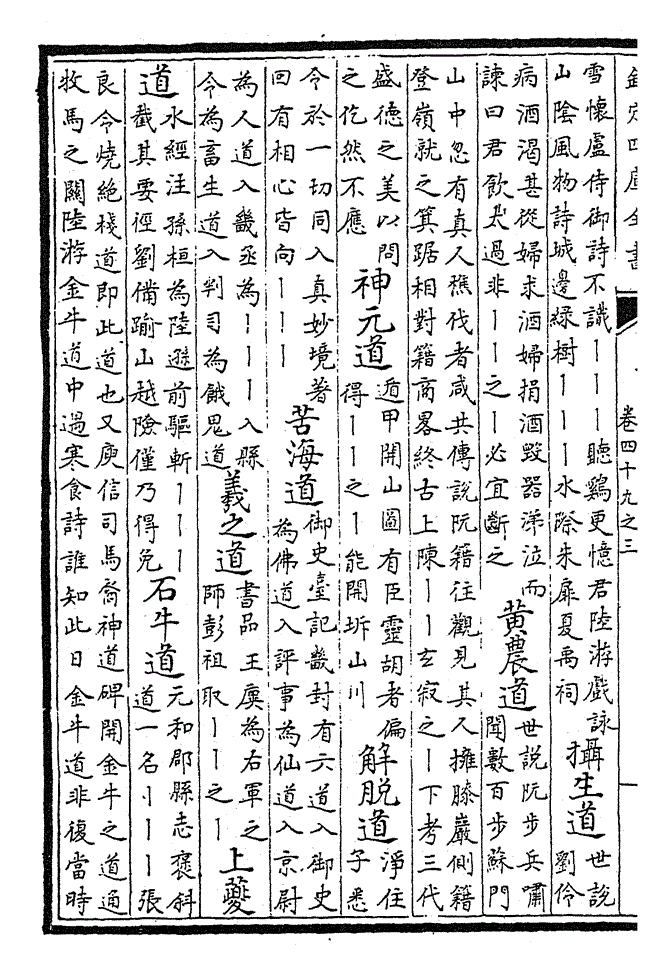 欽定四庫全書
卷四十九之三
雪懷盧侍御詩不識丨丨丨聽鷄更憶君陸游戲詠
山陰風物詩城邊綠樹丨丨丨水際朱扉夏禹祠
攝生道
世説
劉伶
病酒渴甚從婦求酒婦捐酒毀器涕泣而
諫曰君飲太過非丨丨之丨必宜斷之
黃農道
世説阮步兵嘯
聞數百步蘇門
山中忽有真人樵伐者咸共傳説阮籍往觀見其人擁膝巖側籍
登嶺就之箕踞相對籍商畧終古上陳丨丨玄寂之丨下考三代
盛德之美以問
之仡然不應
神元道
遁甲開山圖有臣靈胡者偏
得丨丨之丨能開坼山川
解脱道
淨住
子悉
令於一切同入真妙境著
回有相心皆向丨丨丨
苦海道
御史臺記畿封有六道入御史
為佛道入評事為仙道入京尉
為人道入畿丞為丨丨丨入縣
令為畜生道入判司為餓鬼道
羲之道
書品王廙為右軍之
師彭祖取丨丨之丨
上夔
道
水經注孫桓為陸遜前驅斬丨丨丨
截其要徑劉備踰山越險僅乃得免
石牛道
元和郡縣志褒斜
道一名丨丨丨張
良令燒絶棧道即此道也又庾信司馬裔神道碑開金牛之道通
牧馬之關陸游金牛道中遇寒食詩誰知此日金牛道非復當時